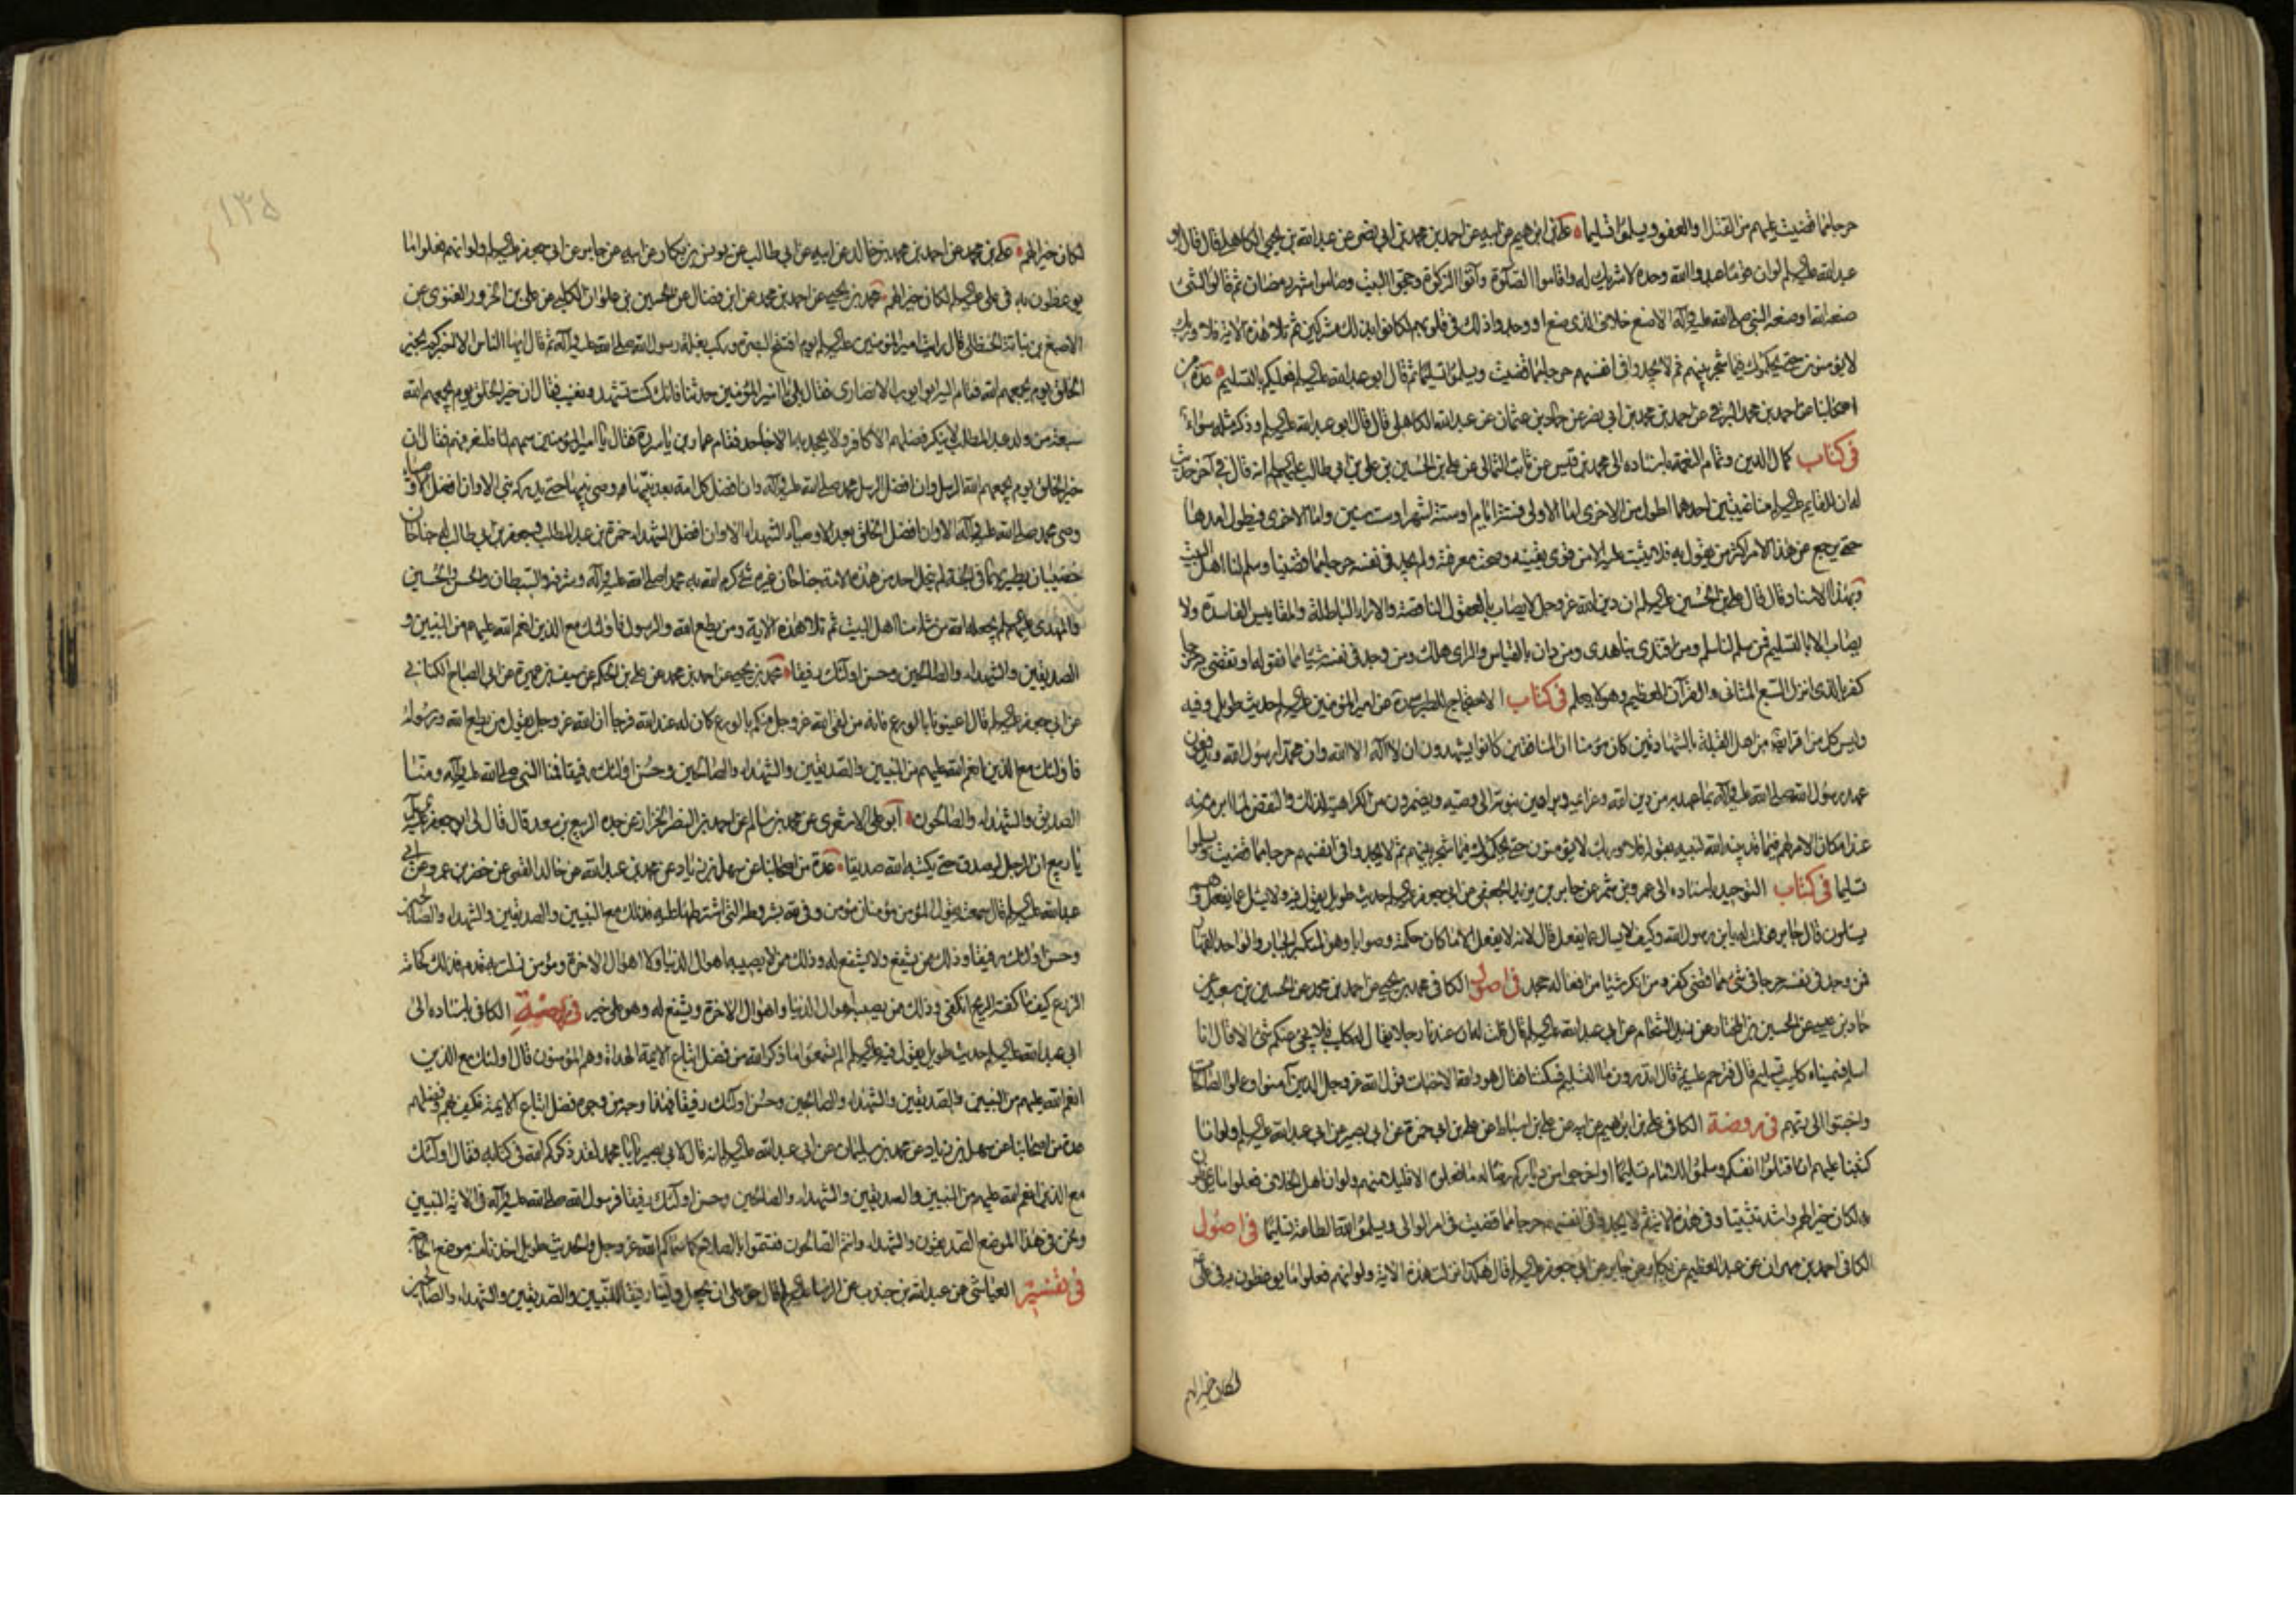 حرجا مما قضيت عليهم من القتل او العفو ويسلموا تسليما علي بن ابرهيم عن ابيه عن احمد بن محمد بن ابي نصر عن عبد الله بن يحيى الكاهلي قال قال ابو
عبد الله عليه السلم لو ان قوما عبدوا الله وحده لا شريك له واقاموا الصلوة وآتوا الزكوة وحجوا البيت وصاموا شهر رمضان ثم قالوا لشئ
صنعه الله او صنعه النبي صلى الله عليه وآله الا صنع خلاف الذي صنع او وجدوا ذلك في قلوبهم لكانوا بذلك مشركين ثم تلا هذه الاية فلا وربك
لا يؤمنون حتى يحكموك فيما شجر بينهم ثم لا يجدوا في انفسهم حرجا مما قضيت ويسلموا تسليما ثم قال ابو عبد الله عليه السلم فعليكم بالتسليم عدة من
اصحابنا عن احمد بن محمد البرقي عن احمد بن محمد بن ابي نصر عن حماد بن عثمان عن عبد الله الكاهلي قال قال ابو عبد الله عليه السلم وذكر مثله سواء
في كتاب كمال الدين وتمام النعمة باسناده الى محمد بن قيس عن ثابت الثمالي عن علي بن الحسين بن علي بن ابي طالب عليهم السلم انه قال في آخر حديث
له ان للقايم عليه السلم منا غيبتين احدهما اطول من الاخرى اما الاولى فستة ايام او ستة اشهر او ست سنين واما الاخرى فيطول امدها
حتى يرجع عن هذا الامر اكثر من يقول به فلا يثبت عليه الا من قوى يقينه وصحت معرفته ولم يجد في نفسه حرجا مما قضينا وسلم لنا اهل البيت
وبهذا الاسناد قال قال علي بن الحسين عليه السلم ان دين الله عز وجل لا يصاب بالعقول الناقصة والاراء الباطلة والمقاييس الفاسدة ولا
يصاب الا بالتسليم فمن سلم لنا سلم ومن اقتدى بنا هدى ومن دان بالقياس والراى هلك ومن وجد في نفسه شيئا مما نقوله او نقضى به حرجا
كفر بالذى انزل السبع المثانى والقرآن العظيم وهو لا يعلم في كتاب الاحتجاج للطبرسى عن امير المؤمنين عليه السلم حديث طويل وفيه
وليس كل من اقر ايضا من اهل القبلة بالشهادتين كان مؤمنا ان المنافقين كانوا يشهدون ان لا اله الا الله وان محمدا رسول الله ويدفعون
عهد رسول الله صلى الله عليه وآله بما عهد به من دين الله وعزائمه وبراهين نبوته الى وصيه ويضمرون من الكراهية لذلك والنقض لما ابرمه منه
عند امكان الامر لهم فيما قد بينه الله لنبيه بقوله فلا وربك لا يؤمنون حتى يحكموك فيما شجر بينهم ثم لا يجدوا في انفسهم حرجا مما قضيت ويسلموا
تسليما في كتاب التوحيد باسناده الى عمرو بن شمر عن جابر بن يزيد الجعفى عن ابي جعفر عليه السلم حديث طويل يقول فيه ولا يسئل عما يفعل وهم
يسئلون قال جابر فقلت له يا بن رسول الله وكيف لا يسال عما يفعل قال لانه لا يفعل الا ما كان حكمة وصوابا وهو المتكبر الجبار والواحد القهار
فمن وجد في نفسه حرجا في شئ مما قضى كفر ومن انكر شيئا من افعاله جحد في اصول الكافى محمد بن يحيى عن احمد بن محمد عن الحسين بن سعيد عن
حماد بن عيسى عن الحسين بن المختار عن زيد الشحام عن ابي عبد الله عليه السلم قال قلت له ان عندنا رجلا يقال له كليب فلا يجئ عنكم شئ الا قال انا
اسلم فسميناه كليب تسليم قال فترحم عليه ثم قال اتدرون ما التسليم فسكتنا فقال هو والله الاخبات قول الله عز وجل الذين آمنوا وعملوا الصالحات
واخبتوا الى ربهم في روضة الكافى علي بن ابرهيم عن ابيه عن علي بن اسباط عن علي بن ابي حمزة عن ابي بصير عن ابي عبد الله عليه السلم ولو انا
كتبنا عليهم ان اقتلوا انفسكم وسلموا للامام تسليما او اخرجوا من دياركم رضا له ما فعلوه الا قليل منهم ولو ان اهل الخلاف فعلوا ما يوعظون
به لكان خيرا لهم واشد تثبيتا وفي هذه الاية ثم لا يجدوا في انفسهم حرجا مما قضيت في امر الوالى ويسلموا لله الطاعة تسليما في اصول
الكافى احمد بن مهران عن عبد العظيم عن بكار عن جابر عن ابي جعفر عليه السلم قال هكذا نزلت هذه الاية ولو انهم فعلوا ما يوعظون به في علي
لكان خيرا لهم
١٣٥
لكان خيرا لهم علي بن محمد عن احمد بن محمد بن خالد عن ابيه عن ابي طالب عن يونس بن بكار عن ابيه عن جابر عن ابي جعفر عليه السلم ولو انهم فعلوا ما
يوعظون به في علي عليه السلم لكان خيرا لهم محمد بن يحيى عن احمد بن محمد عن ابن فضال عن الحسين بن علوان الكلبى عن علي بن الحزور الغنوى عن
الاصبغ بن نباتة الحنظلى قال رايت امير المؤمنين عليه السلم يوم افتتح البصرة وركب بغلة رسول الله صلى الله عليه وآله ثم قال ايها الناس الا اخبركم بخير
الخلق يوم يجمعهم الله فقام اليه ابو ايوب الانصارى فقال بلى يا امير المؤمنين حدثنا فانك كنت تشهد ونغيب فقال ان خير الخلق يوم يجمعهم الله
سبعة من ولد عبد المطلب لا ينكر فضلهم الا كافر ولا يجحد به الا جاحد فقام عمار بن ياسر ره فقال يا امير المؤمنين سمهم لنا فلنعرفهم فقال ان
خير الخلق يوم يجمعهم الله الرسل وان افضل الرسل محمد صلى الله عليه وآله وان افضل كل امة بعد نبيها وصى نبيها حتى يدركه نبى الا وان افضل الاوصياء
وصى محمد صلى الله عليه وآله الا وان افضل الخلق بعد الاوصياء الشهداء الا وان افضل الشهداء حمزة بن عبد المطلب وجعفر بن ابى طالب له جناحان
خضيبان يطير بهما في الجنة لم ينحل احد من هذه الامة جناحان غيره شئ كرم الله به محمدا صلى الله عليه وآله وشرفه والسبطان الحسن والحسين
والمهدى عليهم السلم يجعله الله من شاء منا اهل البيت ثم تلا هذه الاية ومن يطع الله والرسول فاولئك مع الذين انعم الله عليهم من النبيين و
الصديقين والشهداء والصالحين وحسن اولئك رفيقا محمد بن يحيى عن احمد بن محمد عن علي بن الحكم عن سيف بن عميرة عن ابى الصباح الكنانى
عن ابى جعفر عليه السلم قال اعينونا بالورع فانه من لقى الله عز وجل منكم بالورع كان له عند الله فرجا ان الله عز وجل يقول من يطع الله ورسوله
فاولئك مع الذين انعم الله عليهم من النبيين والصديقين والشهداء والصالحين وحسن اولئك رفيقا فمنا النبى صلى الله عليه وآله ومنا
الصديق والشهداء والصالحون ابو علي الاشعرى عن محمد بن سالم عن احمد بن النضر الخزاز عن جده الربيع بن سعد قال قال لى ابو جعفر عليه السلم
يا ربيع ان الرجل ليصدق حتى يكتبه الله صديقا عدة من اصحابنا عن سهل بن زياد عن محمد بن عبد الله عن خالد القمى عن خضر بن عمرو عن ابى
عبد الله عليه السلم قال سمعته يقول المؤمن مؤمنان مؤمن وفى لله بشروطه التى اشترطها عليه فذلك مع النبيين والصديقين والشهداء والصالحين
وحسن اولئك رفيقا وذلك من يشفع ولا يشفع له وذلك من لا يصيبه اهوال الدنيا ولا اهوال الاخرة ومؤمن زلت به قدم فذلك كخامة
الزرع كيفما كفته الريح انكفى وذلك من يصيبه اهوال الدنيا واهوال الاخرة ويشفع له وهو على خير في روضة الكافى باسناده الى
ابى عبد الله عليه السلم حديث طويل يقول فيه عليه السلم الم تسمعوا ما ذكر الله من فضل اتباع الايمة الهداة وهم المؤمنون قال اولئك مع الذين
انعم الله عليهم من النبيين والصديقين والشهداء والصالحين وحسن اولئك رفيقا فهذا وجه من وجوه فضل اتباع الايمة فكيف بهم وفضلهم
عدة من اصحابنا عن سهل بن زياد عن محمد بن سليمان عن ابى عبد الله عليه السلم انه قال لابى بصير يا ابا محمد لقد ذكركم الله في كتابه فقال اولئك
مع الذين انعم الله عليهم من النبيين والصديقين والشهداء والصالحين وحسن اولئك رفيقا فرسول الله صلى الله عليه وآله في الاية النبيين
ونحن في هذا الموضع الصديقون والشهداء وانتم الصالحون فتسموا بالصلاح كما سماكم الله عز وجل والحديث طويل اخذنا منه موضع الحاجة
في تفسير العياشى عن عبد الله بن جندب عن الرضا عليه السلم قال حق على الله ان يجعل ولينا رفيقا للنبيين والصديقين والشهداء والصالحين